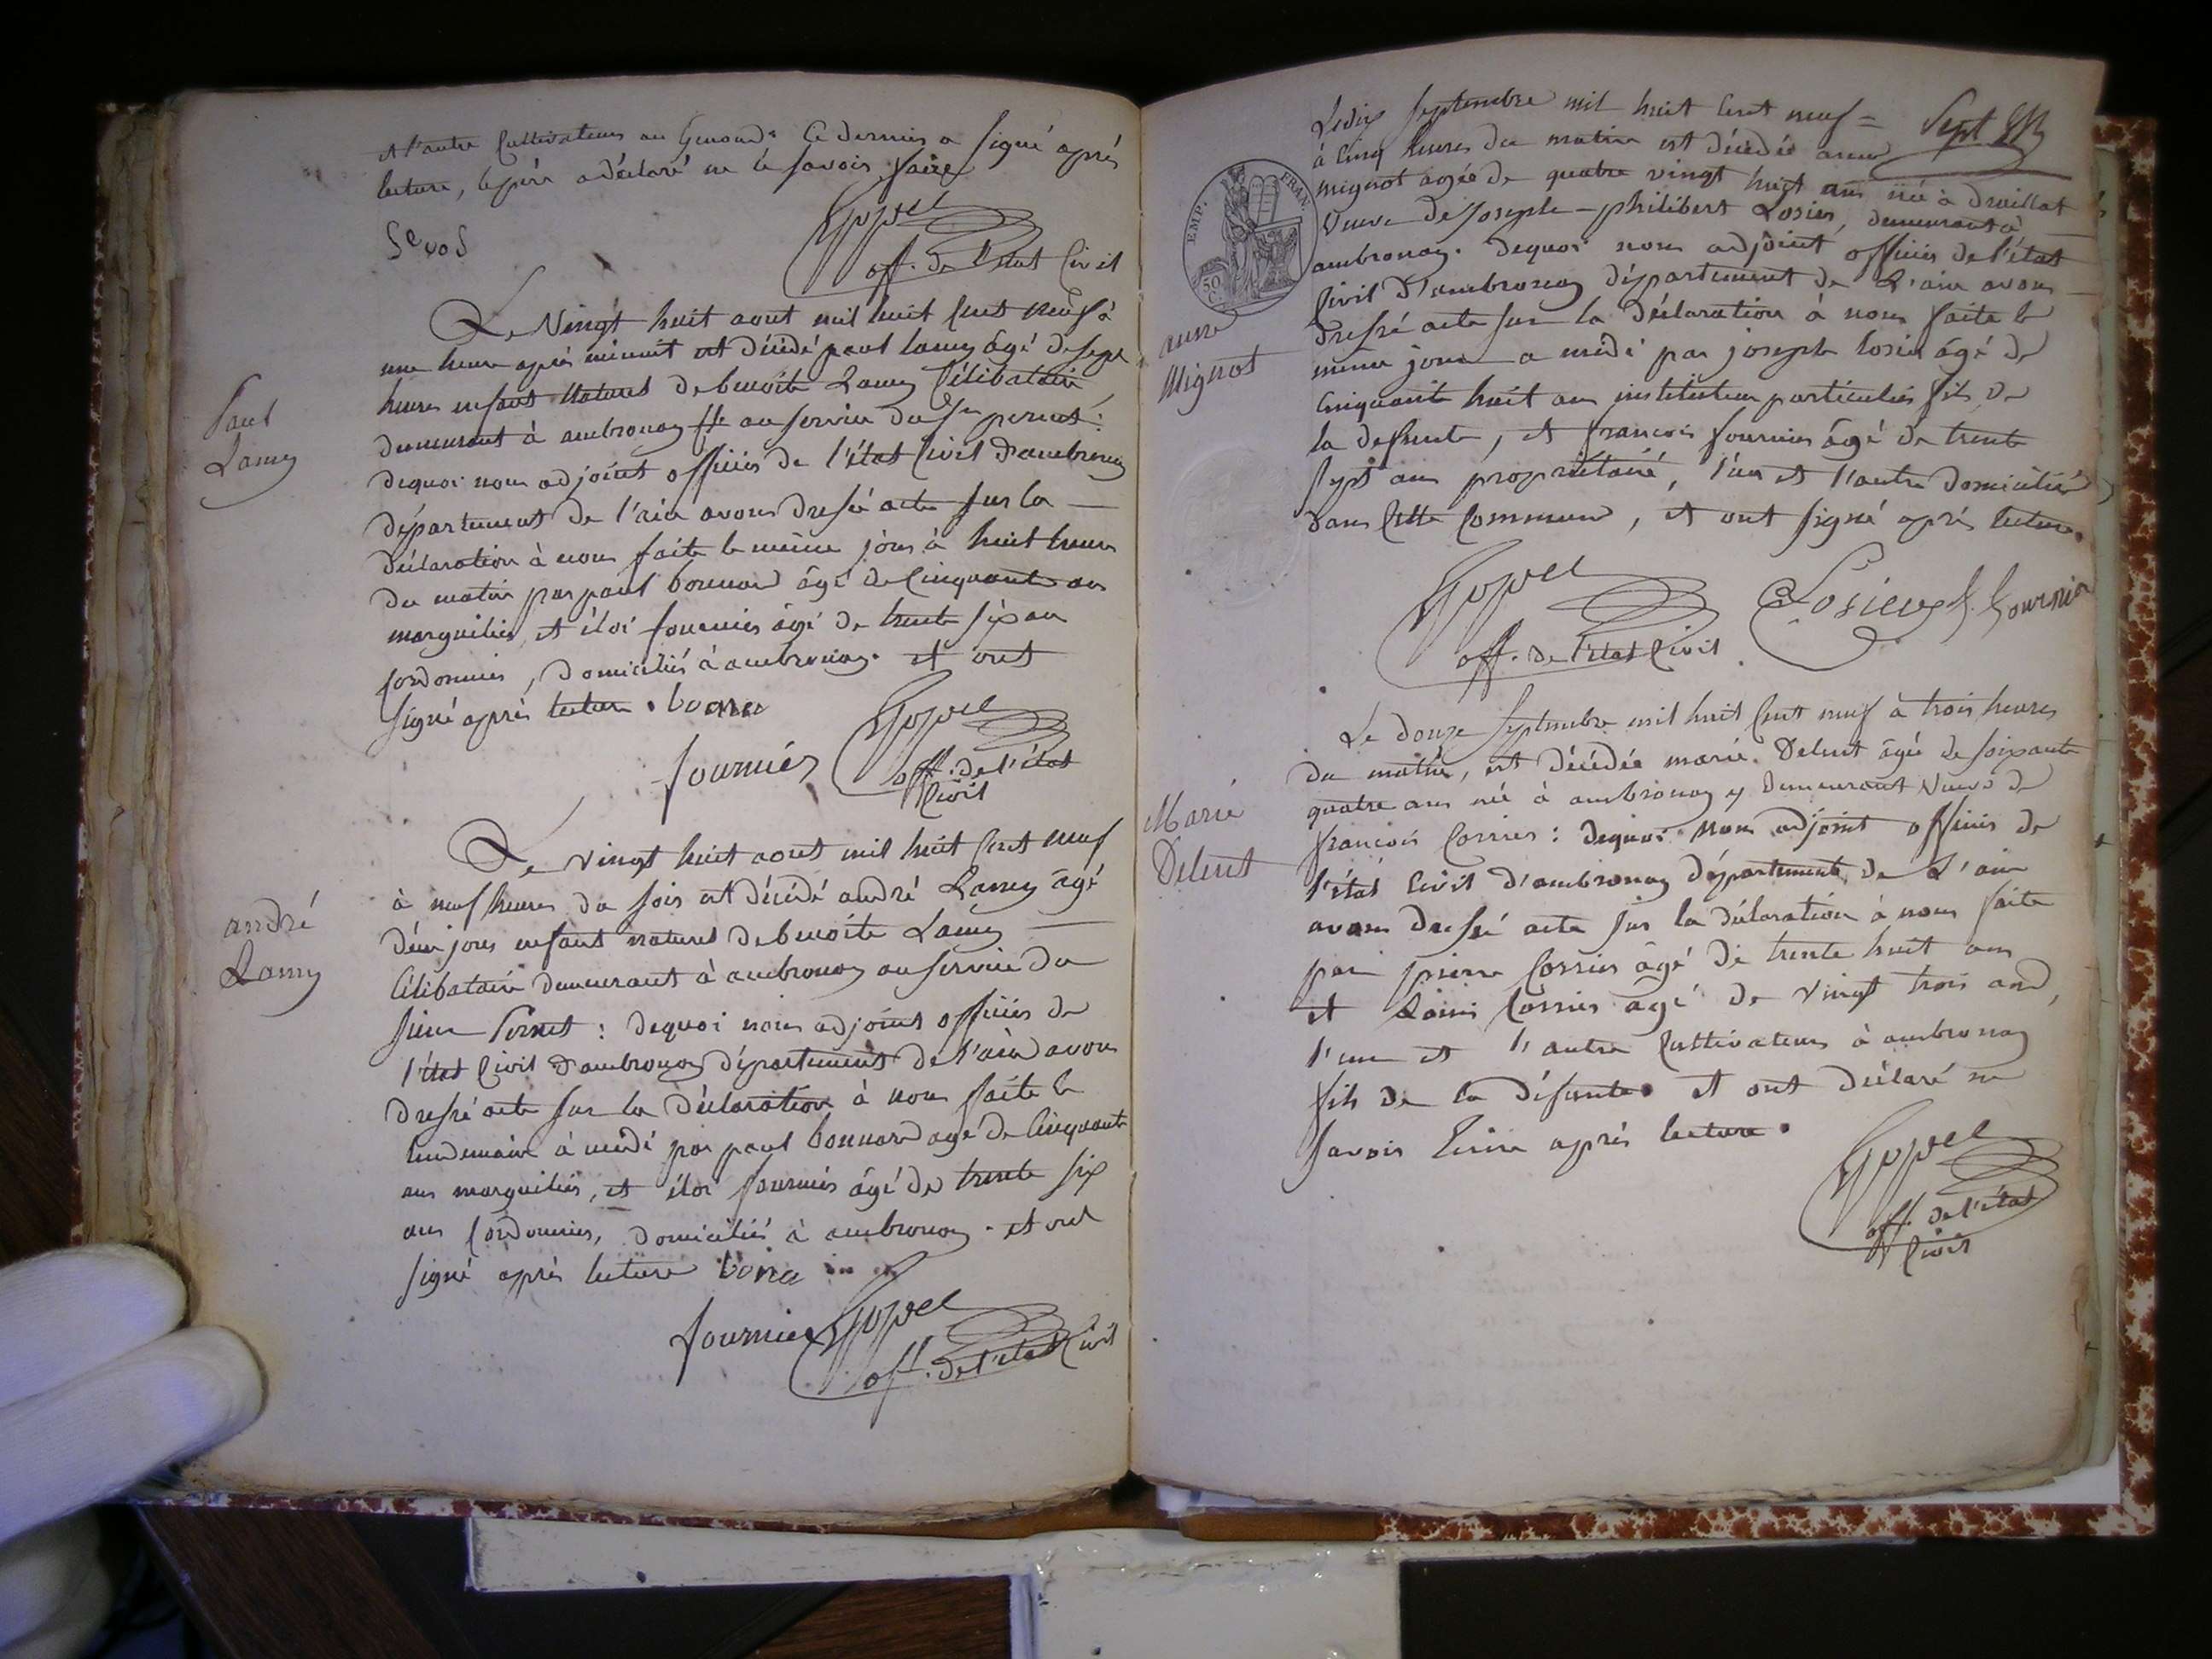 et l'autre Cultivateurs au Genoud. Ce dernier a signé après
lecture, le père a déclaré ne le savoir faire
off. de l'état Civil
Paul
Lamy
Le Vingt huit aout mil huit Cent neuf à
une heure après minuit est décédé paul lamy âgé de sept
heures enfant Naturel de benoîte Lamy Célibataire
demeurant à ambronay au service du Sr pernet:
dequoi nous adjoint officier de l'état Civil d'ambronay
département de l'ain avons dressé acte sur la
déclaration à nous faite le même jour à huit heures
du matin par paul bonnard âgé de Cinquante ans
marguilier, et éloi fournier âgé de trente six ans
Cordonnier, domiciliés à ambronay. et ont
signé après lecture. bona
fournier
off. de l'état
Civil
andré
Lamy
Le vingt huit aout mil huit Cent neuf
à neuf heures du soir est décédé andré Lamy âgé
d'un jour enfant naturel de benoîte Lamy
Célibataire demeurant à ambronay au service du
sieur Pernet: dequoi nous adjoint officier de
l'état Civil d'ambronay département de l'ain avons
dressé acte sur la déclaration à nous faite le
lendemain à midi par paul bonnard agé de Cinquante
ans marguilier, et éloi fournier âgé de trente six
ans Cordonnier, domiciliés à ambronay. et ont
signé après lecture bona
fournier
off. de l'état Civil
EMP. FRAN.
50
C.
Sept
anne
Mignot
Le dix Septembre mil huit Cent neuf =
à Cinq heures du matin est décédée anne
mignot agée de quatre vingt huit ans née à druillat
Veuve de joseph-philibert Losier, demeurant à
ambronay. dequoi nous adjoint officier de l'état
Civil d'ambronay département de L'ain avons
dressé acte sur la déclaration à nous faite le
même jour a midi par joseph losier âgé de
Cinquante huit ans instituteur particulier fils de
la defunte, et françois fournier âgé de trente
sept ans propriétaire, l'un et l'autre domiciliés
dans Cette Commune, et ont signé après lecture.
Losier f. fournier
off. de l'état Civil
Marie
Delent
Le douze Septembre mil huit Cent neuf à trois heures
du matin, est décédée marie Delent âgée de soixante
quatre ans née à ambronay y demeurant Veuve de
françois Corrier: dequoi nous adjoint officier de
l'état Civil d'ambronay département de L'ain
avons dressé acte sur la déclaration à nous faite
par pierre Corrier âgé de trente huit ans
et Louis Corrier âgé de vingt trois ans,
l'un et l'autre Cultivateurs à ambronay
fils de la défunte. et ont déclaré ne
savoir Ecrire après lecture.
off. de l'état
Civil